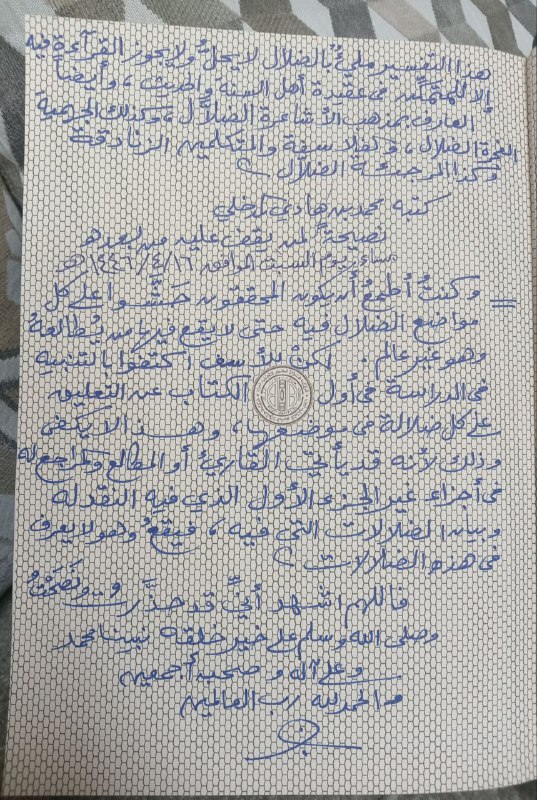 هذا التفسير مليءٌ بالضلال لا يحلُّ ولا يجوز القرآءة فيه
إلا للمتمكِّن في عقيدة أهل السنة والحديث، وأيضاً
العارف بمذهب الأشاعرة الضلَّال، وكذلك الجهمية
الضلال، والفلاسفة والمتكلمين الزنادقة
وكذا المرجئة الضلال.
كتبه محمد بن هادي المدخلي
نصيحةً لمن يقف عليه من بعده
مساء يوم السبت الموافق ١٤٤٦/٤/١٦هـ
= وكنتُ أطمعُ أن يكون المحققون حَشَّوا على كل
مواضع الضلال فيه حتى لا يقع فيها من يُطالعهُ
وهو غير عالم. لكنْ للأسف اكتفوا بالتنبيه
في الدراسة في أول الكتاب عن التعليق
على كل ضلالة في موضعها، وهذا لا يكفي
وذلك لأنه قد يأتي القارئُ أو المطالع والمراجع له
في أجزاء غير الجزء الأول الذي فيه النقد له
وبيان الضلالات التي فيه، فيقعُ وهو لا يعرف
في هذه الضلالات.
فاللهم اشهد أنِّي قد حذَّرت.. ونَصَحْتُ
وصلى الله وسلم على خير خلقه نبينا محمد
وعلى آله وصحبه أجمعين
والحمد لله رب العالمين